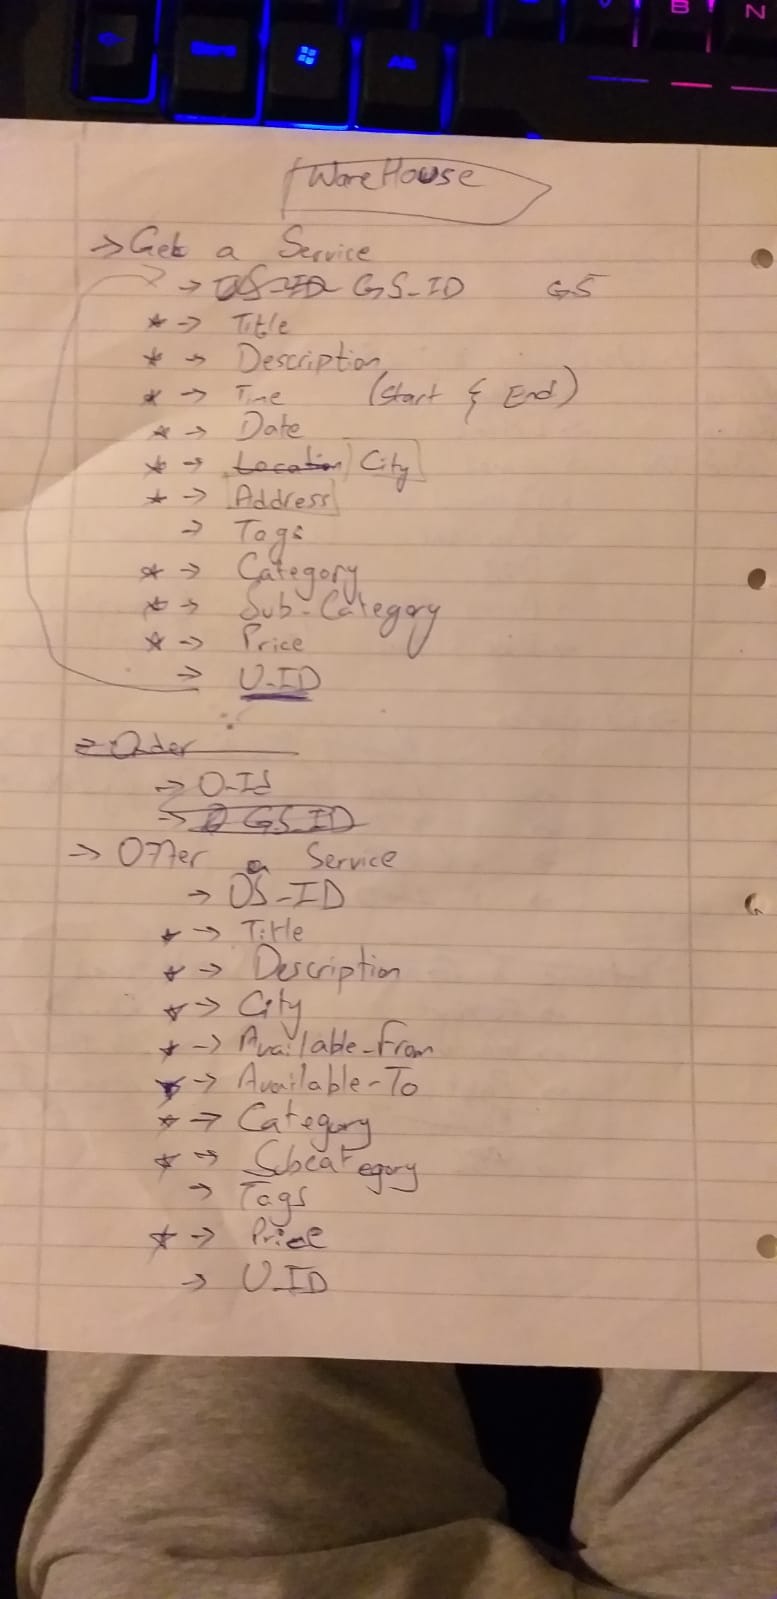 B N
Alt
WareHouse
→ Get a Service
→ OS-ID GS-ID GS
* → Title
* → Description
* → Time (Start & End)
* → Date
* → Location City
* → Address
→ Tags
* → Category
* → Sub-Category
* → Price
→ U-ID
→ Order
→ O-Id
→ GS-ID
→ Offer a Service
→ OS-ID
* → Title
* → Description
* → City
* → Available-From
* → Available-To
* → Category
* → Subcategory
→ Tags
* → Price
→ U-ID